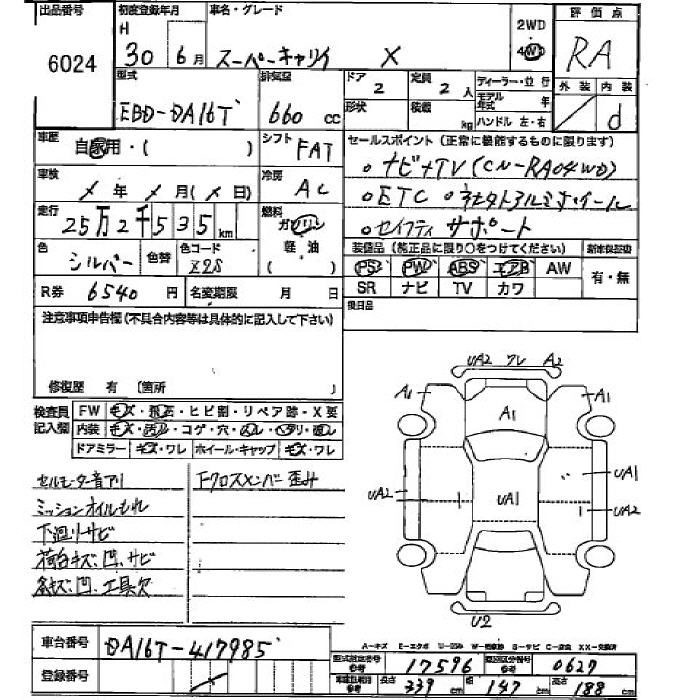 出品番号
6024
初度登録年月
H 30年6月
車名・グレード
スーパーキャリイ X
2WD
4WD
評価点
RA
外装 内装
d
型式
EBD-DA16T
排気量
660 cc
ドア
2
定員
2 人
形状
積載
kg
ディーラー・並行
モデル年式 年
ハンドル 左・右
車歴
自家用・( )
シフト
FAT
セールスポイント (正常に機能するものに限ります)
車検
年 月 ( 日)
冷房
AC
○ナビ+TV (CN-RA04WD)
○ETC ○社外アルミホイール
○セイフティサポート
走行
25万2千535 km
燃料
ガソリン
軽油
( )
色
シルバー
色替
色コード
Z2S
装備品 (純正品に限り○をつけてください)
新車保証書
PS PW ABS エアB AW
SR ナビ TV カワ
有・無
R券 6540 円
名変期限 月 日
後日品
注意事項申告欄(不具合内容等は具体的に記入して下さい)
修復歴 有 〔箇所 〕
検査員記入欄
FW キズ・飛石・ヒビ割・リペア跡・X要
内装 キズ・汚れ・コゲ・穴
ドアミラー キズ・ワレ ホイール・キャップ キズ・ワレ
UA2 ワレ A2
A1 A1
A1
UA1
UA2 UA1
UA2
U2
セルモーター音アリ
Fクロスメンバー歪み
ミッションオイルもれ
下廻りサビ
荷台キズ、凹、サビ
工具欠
A-キズ E-エクボ
車台番号 DA16T-417985
登録番号
型式指定番号 参考 17596
類別区分番号 参考 0627
長さ 339 cm
幅 147 cm
高さ 188 cm